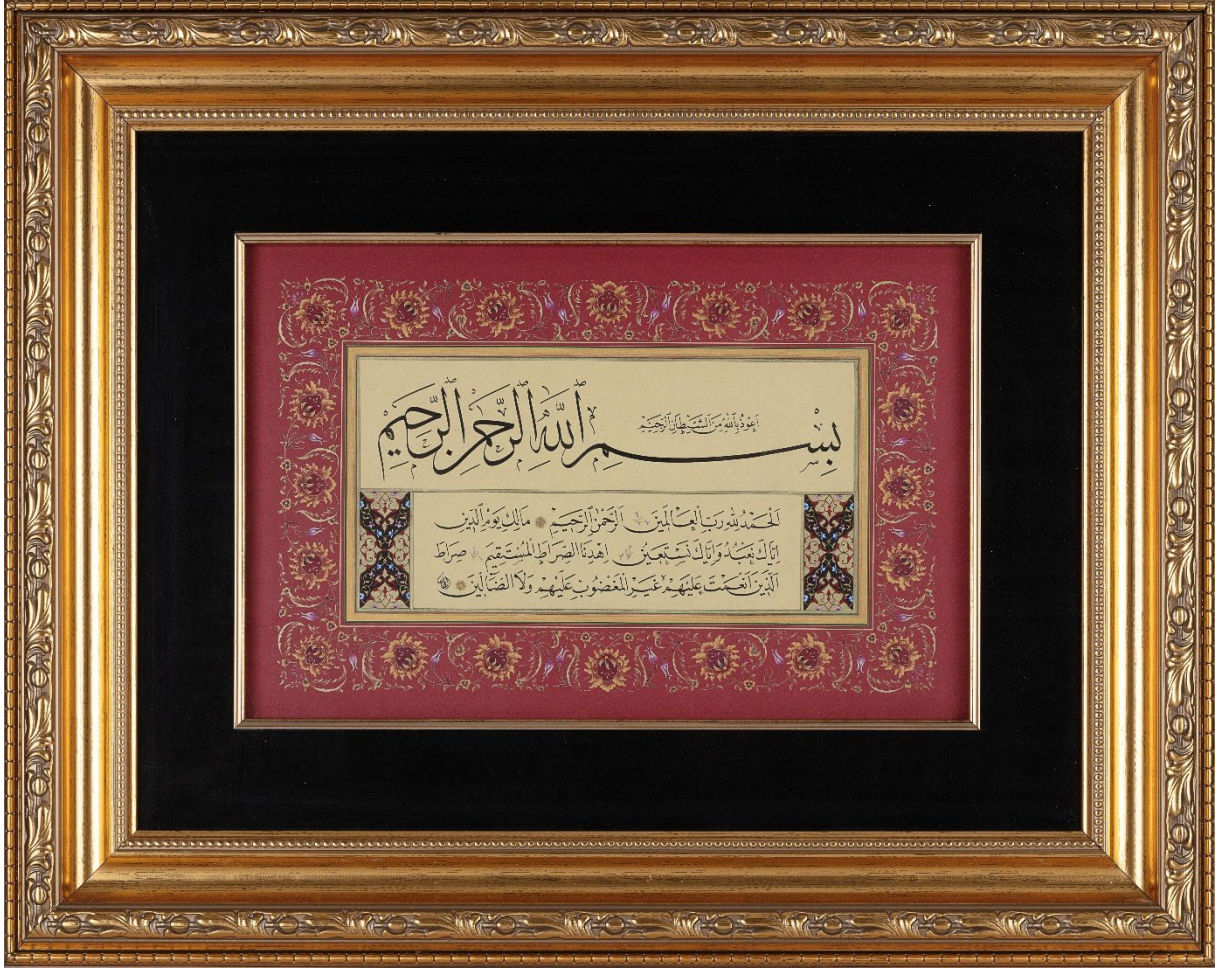 أعوذ بالله من الشيطان الرجيم
بِسْمِ ٱللَّهِ ٱلرَّحْمٰنِ ٱلرَّحِيمِ
اَلْحَمْدُ لِلّٰهِ رَبِّ الْعَالَمِينَ اَلرَّحْمٰنِ الرَّحِيمِ مَالِكِ يَوْمِ الدِّينِ
اِيَّاكَ نَعْبُدُ وَاِيَّاكَ نَسْتَعِينُ اِهْدِنَا الصِّرَاطَ الْمُسْتَقِيمَ صِرَاطَ
الَّذِينَ اَنْعَمْتَ عَلَيْهِمْ غَيْرِ الْمَغْضُوبِ عَلَيْهِمْ وَلَا الضَّالِّينَ